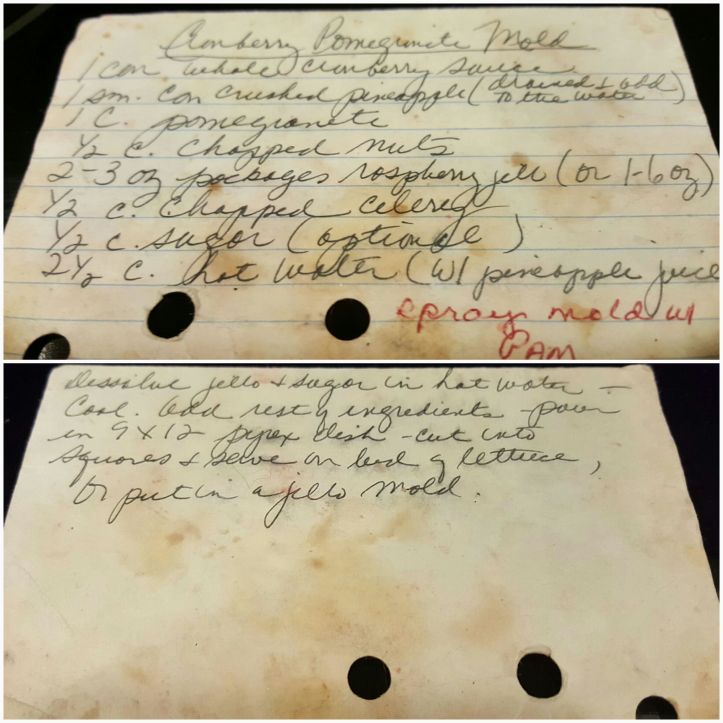 Cranberry Pomegranite Mold
1 can whole cranberry sauce
1 sm. can crushed pineapple (drained & add to the water)
1 c. pomegranite
1/2 c. chopped nuts
2-3 oz packages raspberry jell (or 1-6 oz)
1/2 c. chopped celery
1/2 c. sugar (optional)
2 1/2 c. hot water (w/ pineapple juice
spray mold w/
PAM
Dissolve jello & sugar in hot water -
Cool. Add rest of ingredients - pour
in 9 x 12 pyrex dish - cut into
squares & serve on bed of lettuce,
Or put in a jello mold.